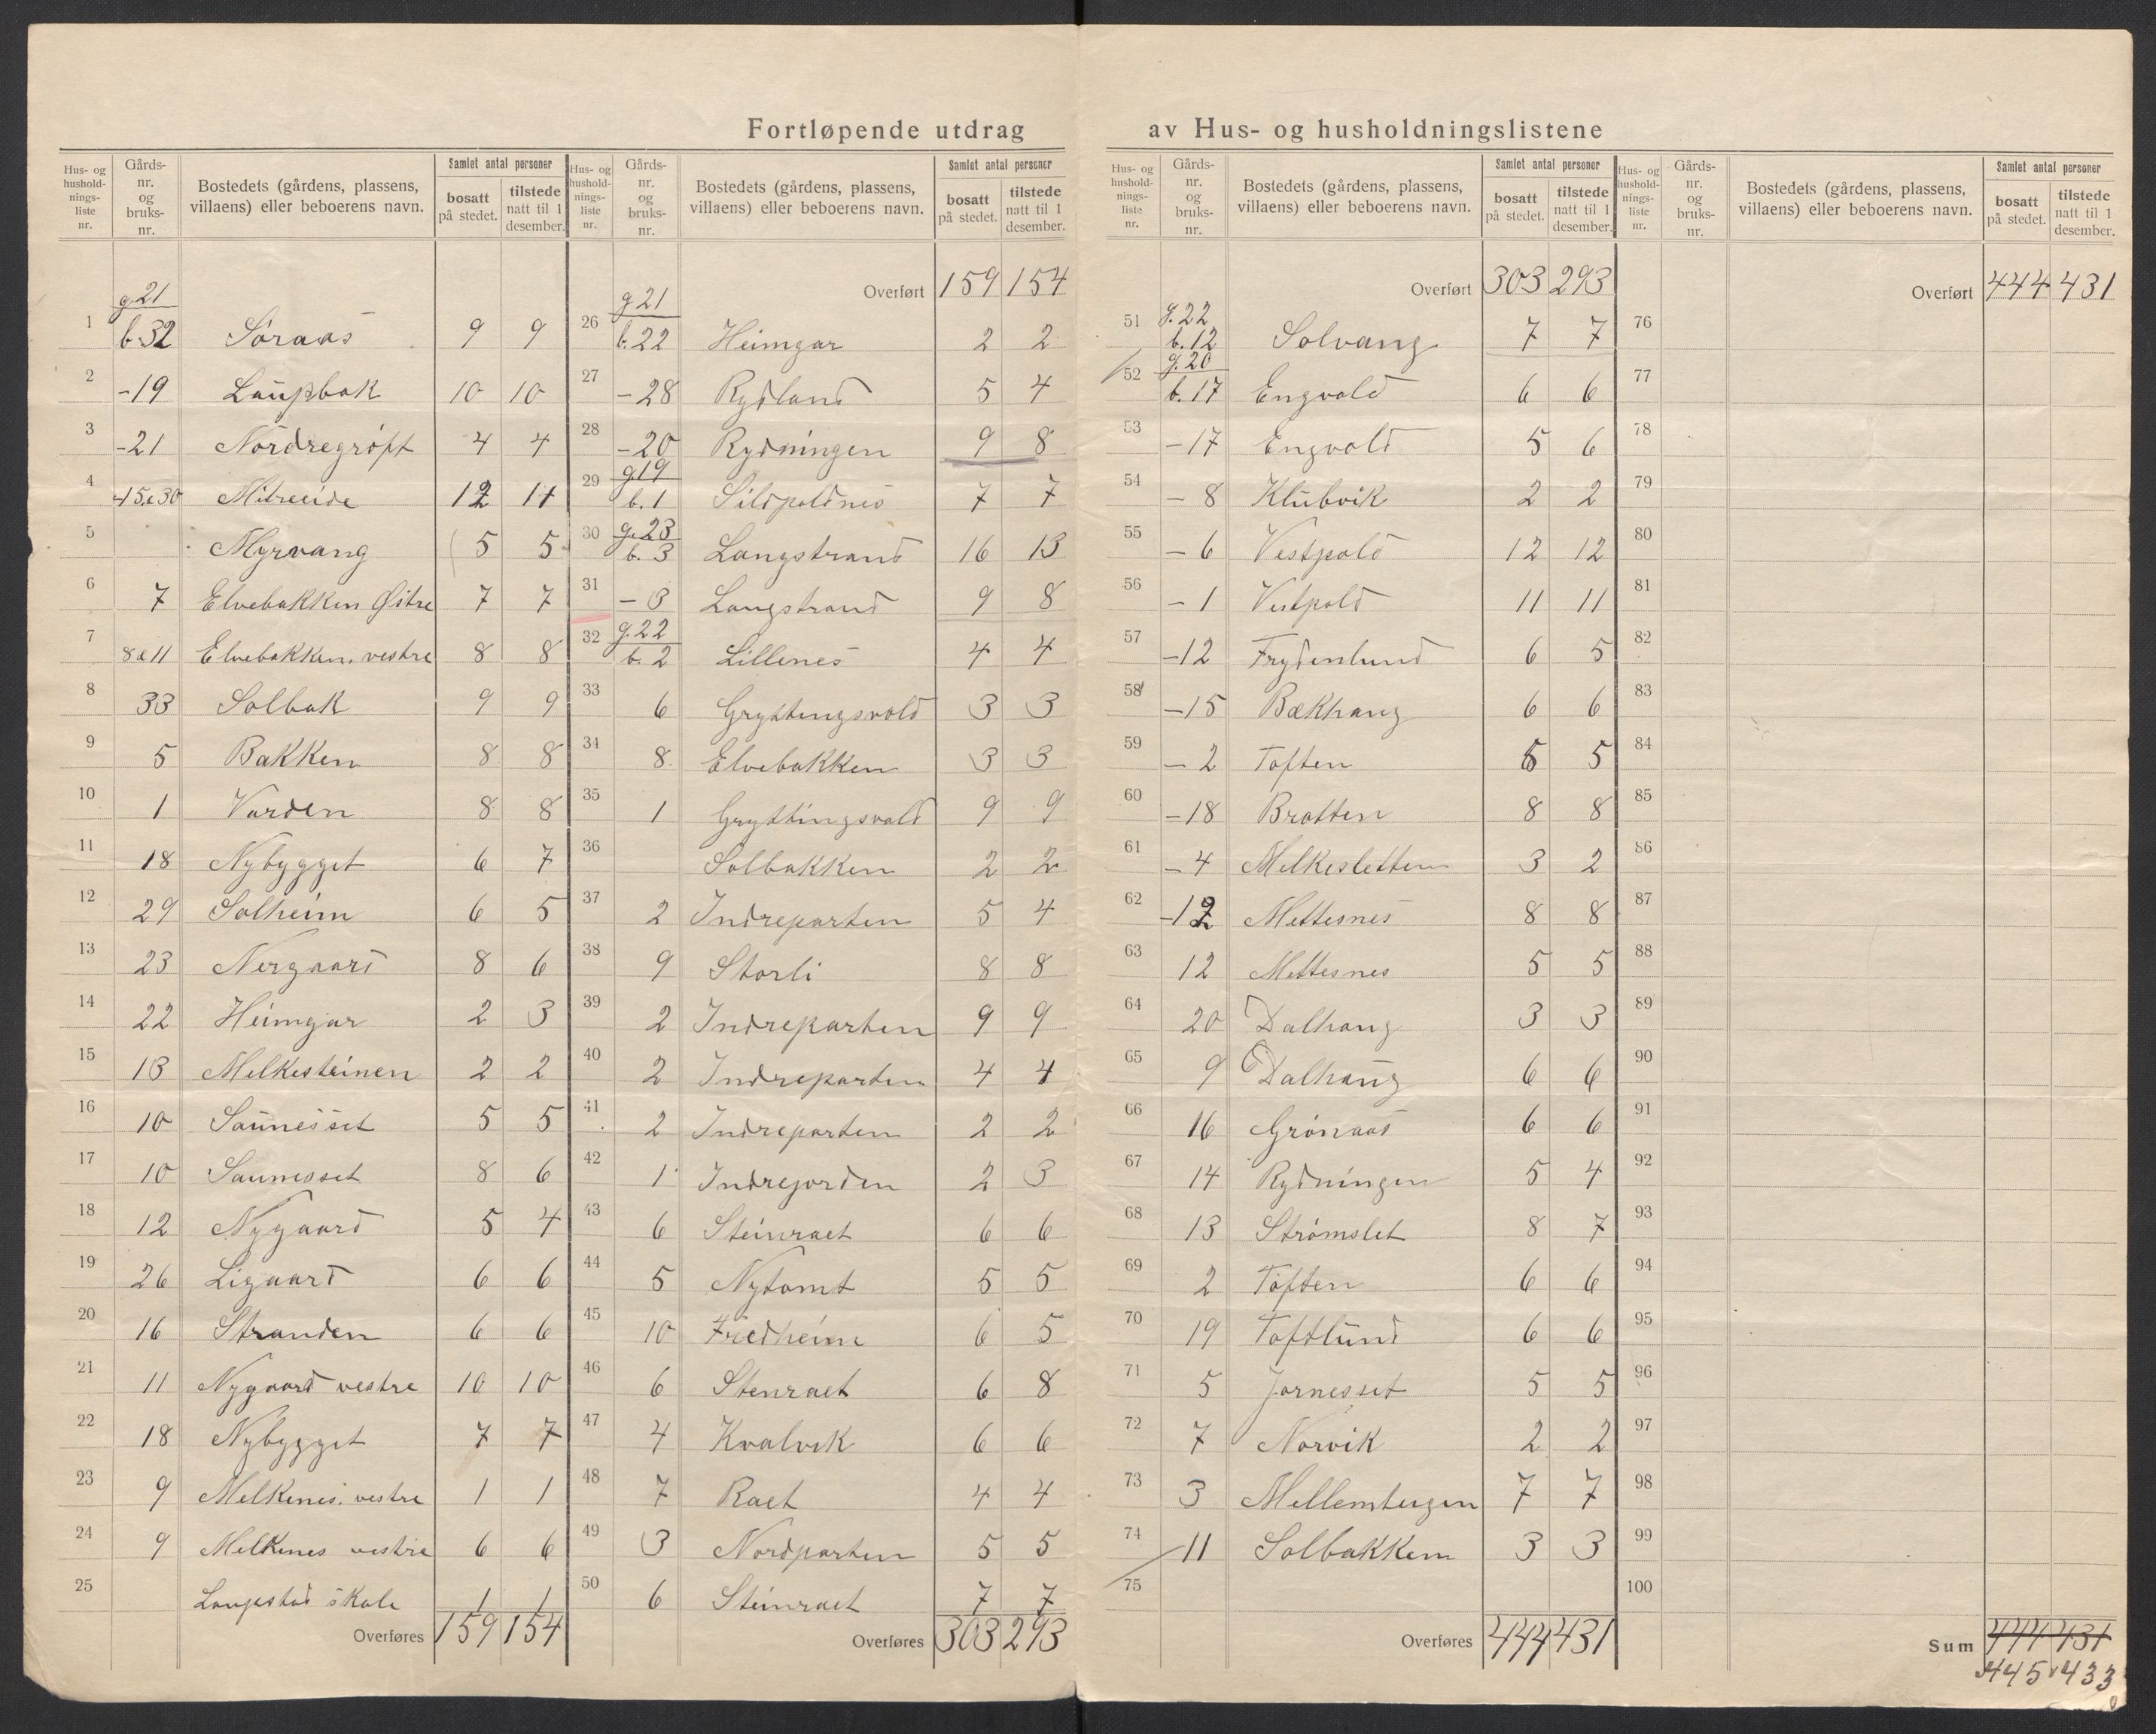 Fortløpende utdrag av Hus- og husholdningslistene
Hus- og husholdningsliste nr. | Gårdsnr. og bruksnr. | Bostedets (gårdens, plassens, villaens) eller beboerens navn. | Samlet antal personer bosatt på stedet. | tilstede natt til 1 desember.
1 g.21 b.32 Søraas 9 9
2 -19 Laupbak 10 10
3 -21 Nordregrøft 4 4
4 -15&30 Mitreeide 12 11
5 Myrvang 5 5
6 7 Elvebakken Østre 7 7
7 8&11 Elvebakken vestre 8 8
8 33 Solbak 9 9
9 5 Bakken 8 8
10 1 Varden 8 8
11 18 Nybygget 6 7
12 29 Solheim 6 5
13 23 Nergaard 8 6
14 22 Heimgar 2 3
15 13 Melkesteinen 2 2
16 10 Saunesset 5 5
17 10 Saunesset 8 6
18 12 Nygaard 5 4
19 26 Ligaard 6 6
20 16 Stranden 6 6
21 11 Nygaard vestre 10 10
22 18 Nybygget 7 7
23 9 Melkenes vestre 1 1
24 9 Melkenes vestre 6 6
25 Laupstad skole 1 1
Overføres 159 154
Hus- og husholdningsliste nr. | Gårdsnr. og bruksnr. | Bostedets (gårdens, plassens, villaens) eller beboerens navn. | Samlet antal personer bosatt på stedet. | tilstede natt til 1 desember.
Overført 159 154
26 g.21 b.22 Heimgar 2 2
27 -28 Rydland 5 4
28 -20 Rydningen 9 8
29 g.19 b.1 Sildpoldnes 7 7
30 g.23 b.3 Langstrand 16 13
31 -3 Langstrand 9 8
32 g.22 b.2 Lillenes 4 4
33 6 Gryttingsvold 3 3
34 8 Elvebakken 3 3
35 1 Gryttingsvold 9 9
36 Solbakken 2 2
37 2 Indreparten 5 4
38 9 Storli 8 8
39 2 Indreparten 9 9
40 2 Indreparten 4 4
41 2 Indreparten 2 2
42 1 Indrejorden 2 3
43 6 Steinraet 6 6
44 5 Nytomt 5 5
45 10 Fredheim 6 5
46 6 Stenraet 6 8
47 4 Kvalvik 6 6
48 7 Raet 4 4
49 3 Nordparten 5 5
50 6 Steinraet 7 7
Overføres 303 293
Hus- og husholdningsliste nr. | Gårdsnr. og bruksnr. | Bostedets (gårdens, plassens, villaens) eller beboerens navn. | Samlet antal personer bosatt på stedet. | tilstede natt til 1 desember.
Overført 303 293
51 g.22 b.12 Solvang 7 7
52 g.20 b.17 Engvold 6 6
53 -17 Engvold 5 6
54 -8 Klubvik 2 2
55 -6 Vestpold 12 12
56 -1 Vestpold 11 11
57 -12 Frydenlund 6 5
58 -15 Bækhaug 6 6
59 -2 Toften 5 5
60 -18 Bratten 8 8
61 -4 Melkesletten 3 2
62 -12 Mettesnes 8 8
63 12 Mettesnes 5 5
64 20 Dalhaug 3 3
65 9 Dalhaug 6 6
66 16 Grønaas 6 6
67 14 Rydningen 5 4
68 13 Strømslet 8 7
69 2 Toften 6 6
70 19 Toftlund 6 6
71 5 Jornesset 5 5
72 7 Norvik 2 2
73 3 Mellemteigen 7 7
74 11 Solbakken 3 3
75
Overføres 444 431
Hus- og husholdningsliste nr. | Gårdsnr. og bruksnr. | Bostedets (gårdens, plassens, villaens) eller beboerens navn. | Samlet antal personer bosatt på stedet. | tilstede natt til 1 desember.
Overført 444 431
76
77
78
79
80
81
82
83
84
85
86
87
88
89
90
91
92
93
94
95
96
97
98
99
100
Sum 444 431
445 433